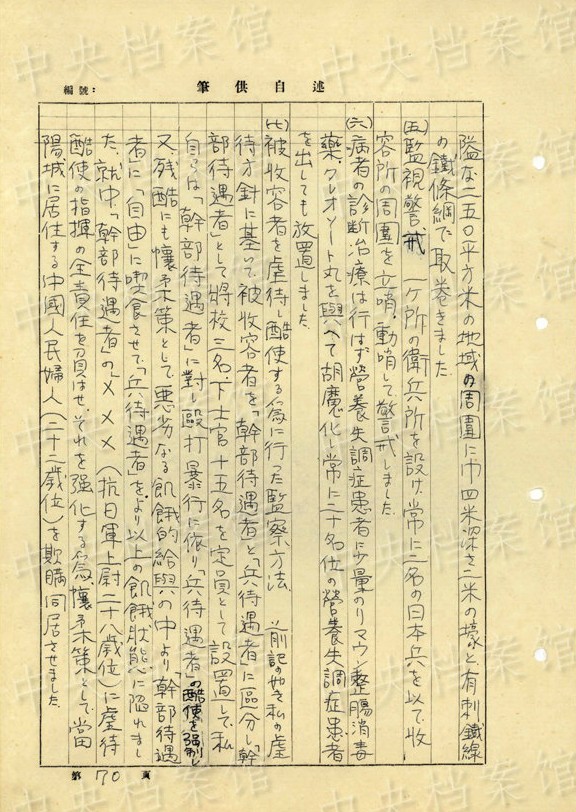 中央档案馆
編號：
筆供自述
隘な二五〇平方米の地域の周囲に巾四米深さ二米の壕と有刺鐵線
の鐵條網で取巻きました
(五)監視警戒 一ケ所の衛兵所を設け、常に二名の日本兵を以て收
容所の周圍を立哨、動哨して警戒しました。
(六)病者の診断治療は行はず營養失調症患者に少量のリマウン整腸消毒
藥、クレオソート丸を與へて胡魔化し常に二十名位の營養失調症患者
を出しても放置しました。
(七)被收容者を虐待し酷使する為に行った監察方法、 前記の如き私の虐
待方針に基いて、被收容者を「幹部待遇者」と「兵待遇者」に區分し「幹
部待遇者」として將校三名、下士官十五名を定員として設置して、私
自らは「幹部待遇者」に對し毆打暴行に依り「兵待遇者」の酷使を強制し
又、残酷にも懐柔策として悪劣なる飢餓的給與の中より「幹部待遇
者」に「自由」に喫食させて、「兵待遇者」をより以上の飢餓狀態に恐れまし
た、就中「幹部待遇者」の××× (抗日軍上尉二十八歲位)に虐待
酷使の指揮の全責任を負はせ、それを強化する為懐柔策として當
陽城に居住する中國人民婦人(二十二歲位)を欺瞞同居させました。
第 70 頁